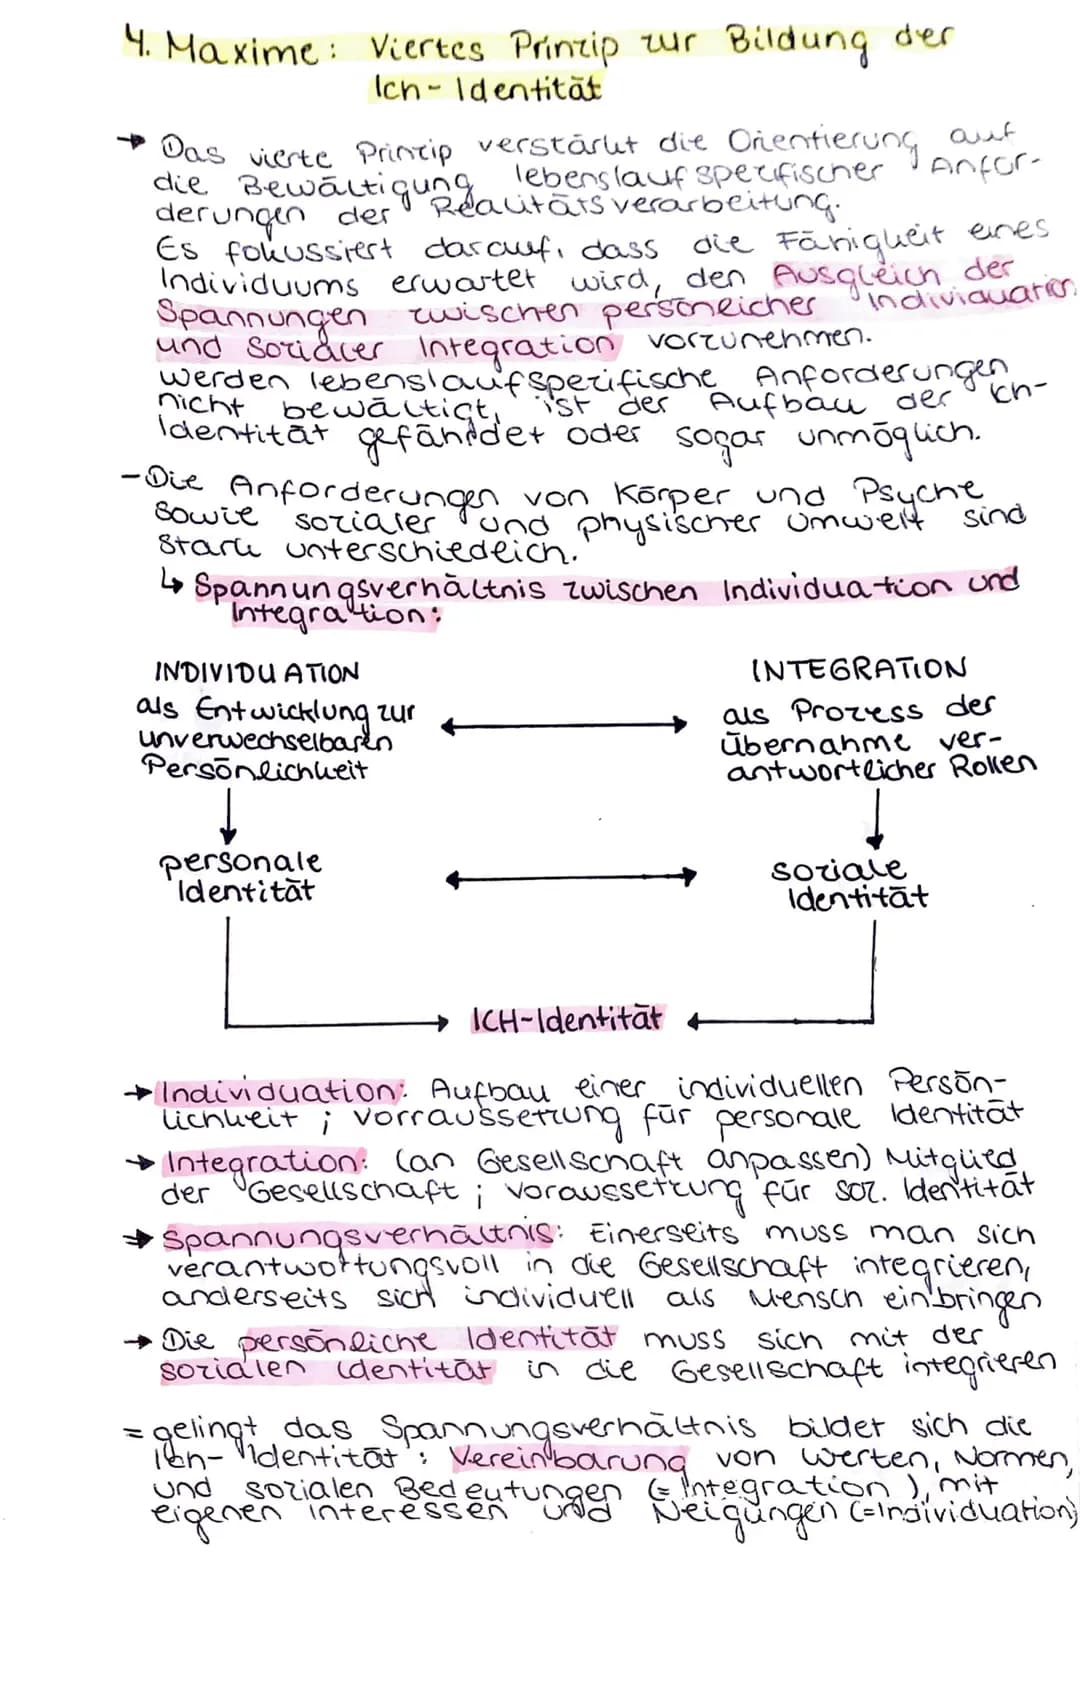 4. Maxime: Viertes Prinzip zur Bildung der
Ich-Identität
→ Das vierte Prinzip verstärkt die Orientierung auf
die Bewältigung lebenslaufspezifischer Anfor-
derungen der Realitätsverarbeitung.
Es fokussiert darauf, dass die Fähigkeit eines
Individuums erwartet wird, den Ausgleich der
Spannungen zwischen persönlicher Individuation
und sozialer Integration vorzunehmen.
werden lebenslaufspezifische Anforderungen
nicht bewältigt, ist der Aufbau der Ich-
Identität gefährdet oder sogar unmöglich.
- Die Anforderungen von Körper und Psyche
sowie sozialer und physischer Umwelt sind
stark unterschiedlich.
↳ Spannungsverhältnis zwischen Individuation und
Integration:
INDIVIDUATION
als Entwicklung zur
unverwechselbaren
Persönlichkeit
INTEGRATION
als Prozess der
Übernahme ver-
antwortlicher Rollen
personale
Identität
soziale
Identität
ICH-Identität
→ Individuation: Aufbau einer individuellen Persön-
lichkeit ; Vorraussetzung für personale Identität
→ Integration: (an Gesellschaft anpassen) Mitglied
der Gesellschaft ; Voraussetzung für soz. Identität
→ Spannungsverhältnis: Einerseits muss man sich
verantwortungsvoll in die Gesellschaft integrieren,
anderseits sich individuell als Mensch einbringen
→ Die persönliche Identität muss sich mit der
sozialen Identität in die Gesellschaft integrieren
= gelingt das Spannungsverhältnis bildet sich die
Ich-Identität: Vereinbarung von Werten, Normen,
und sozialen Bedeutungen (= Integration), mit
eigenen Interessen und Neigungen (=Individuation)